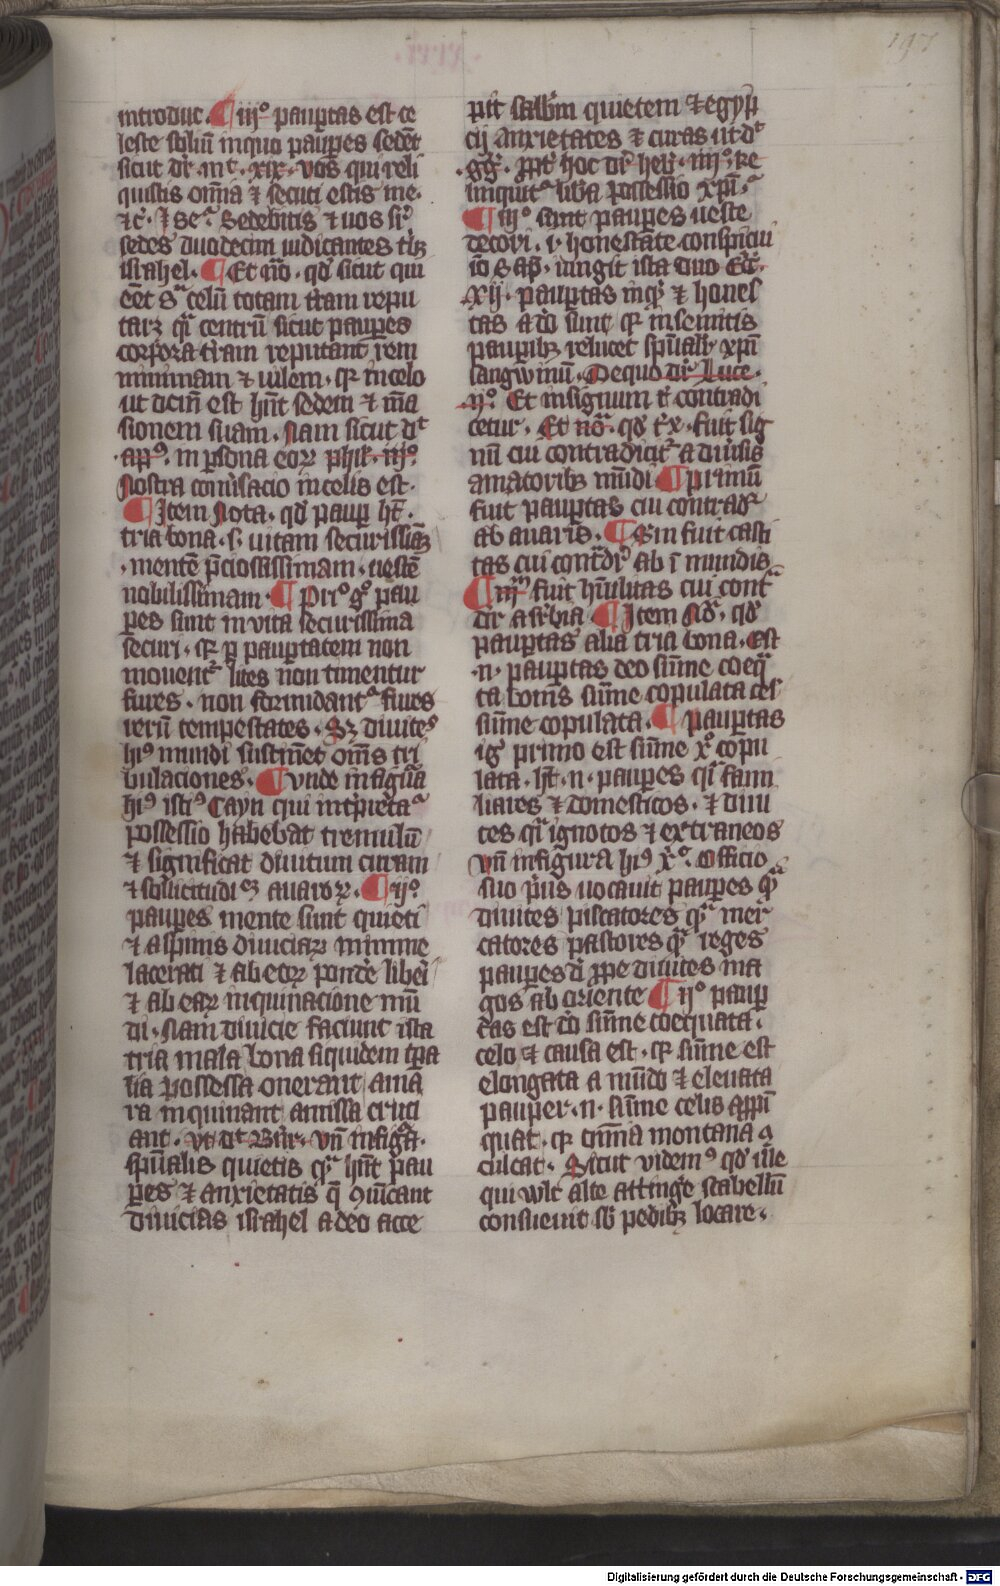 197
introduc̄. ¶ iij° paup̄tas est ce
leste soliū inquo paup̄es sedēt
sicut dr̄. mͭ. xix. vos qui reli
quistis om̄ia ⁊ secuti estis me.
⁊c̄. Sedebitis ⁊ uos sr̄
sedes duodecim iudicantes tb̄ꝫ
israhel. ¶ Et nō. qd̛ sicut qui
eēt sͣ celū totam t̄ram repu
taꝫ qͥ centrū sicut paup̄es
t̄ram reputant rem
minimam ⁊ uilem. qꝛ incelo
ut dcm̄ est hn̄t sedem ⁊ mā
sionem suam. Nam sicut dͭ
ap̄ꝰ. in ꝑsona eoꝝ phil̛. iij°.
Nostra conūsacio incelis est.
¶ Item Nota. qd̛ paup̄ hꝫ.
tria bona. s. uitam securissīaꝫ
mentē p̄ciosissimam. uestē
nobilissimam. ¶ Pri° gͦ pau
ꝑes sunt in vita securissima
securi. qꝛ ꝑ paup̄tatem non
mouentᷣ lites non timentur
fures. non formidantᷣ
rerū tempestates. Sꝫ diuiteˢ
hiꝰ mundi sustinēt om̄s tri
bulaciones. ¶ Vnde infigura
hiꝰ istiꝰ Cayn qui int̄pretaᷣ
possessio habebat tremulū
⁊ significat diuitum curam
⁊ sollicitudiēꝫ auaroꝝ. ¶ ij°
paup̄es mente sunt quieti
⁊ aspinis diuiciaꝝ minime
lacerati ⁊ ab eaꝝ pondr̄e liberi
⁊ ab eaꝝ inquinacione mū
di. Nam diuicie faciunt ista
tria mala bona siquidem tp̄a
lia possessa onerant ama
ta inquinant amissa cruci
ant. vt dͭ Br̄n. Vn̄ infigͣa.
spūalis quietis qͣ hn̄t pau
ꝑes ⁊ anxietatis q̄
diuicias israhel adeo acce
pit quietem ⁊ egyp
cij anxietates ⁊ curas ut dͭ
gg̛. ppt̄ hoc dr̄ heb̛. iij° Re
linquitᷣ lib̄a possessio xp̄i.
¶ iij° sunt paup̄es ueste
decori. i. honestate conspicui
iō S ap̄. iungit ista duo Ecc̄.
xij. paup̄tas inqͥ ⁊ hones
tas a dō sunt qꝛ insemitis
pauꝑibꝫ relucet spūalit̄ xp̄i
sangwinū. Dequo dr̄ Luce.
ij°. Et insignum cͥ contradi
cetur. Et nō. qd̛ fuit sig
nū cui contradicitᷣ a diuisis
amatoribꝫ mūdi. ¶ Primū
fuit paup̄tas cui contradr̄
ab auaris. ¶ Sm̄ fuit casti
tas cui contͣdr̄ ab īmundis
¶ iijm̄ fuit hūilitas cui contͣ
dr̄ a sup̄bia ¶ Item Nō. qd̛
paup̄tas alia tria bona. Est
.n. paup̄tas deo sūme coeqͣ
ta bonis sūme copulata cel̛
sūme copulata. ¶ paup̄tas
igͥ primo est sūme x° copu
lata. hꝫ .n. paup̄es qͥ fami
liares ⁊ domesticos. ⁊ diui
tes qͥ ignotos ⁊ extraneos
Vn̄ infigura hiꝰ Officio
suo pͥus uocauit paup̄es qͣ
diuites piscatores qͣ mer
catores pastores qͣ reges
paup̄es diuites ma
gos ab oriente ¶ ij° paup̄
tas est dō sūme coequata.
celo ⁊ causa est. qꝛ sūme est
elongata a mūdo ⁊ eleuata
pauper .n. sūme celis app̄i
quat. qꝛ om̄ia montana ꝯ
culcat. Sicut videmꝰ qd̛ ille
qui wlt alte attinge̅ scabellū
consueuit sb̄ pedibꝫ locare.
Digitalisierung gefördert durch die Deutsche Forschungsgemeinschaft - DFG